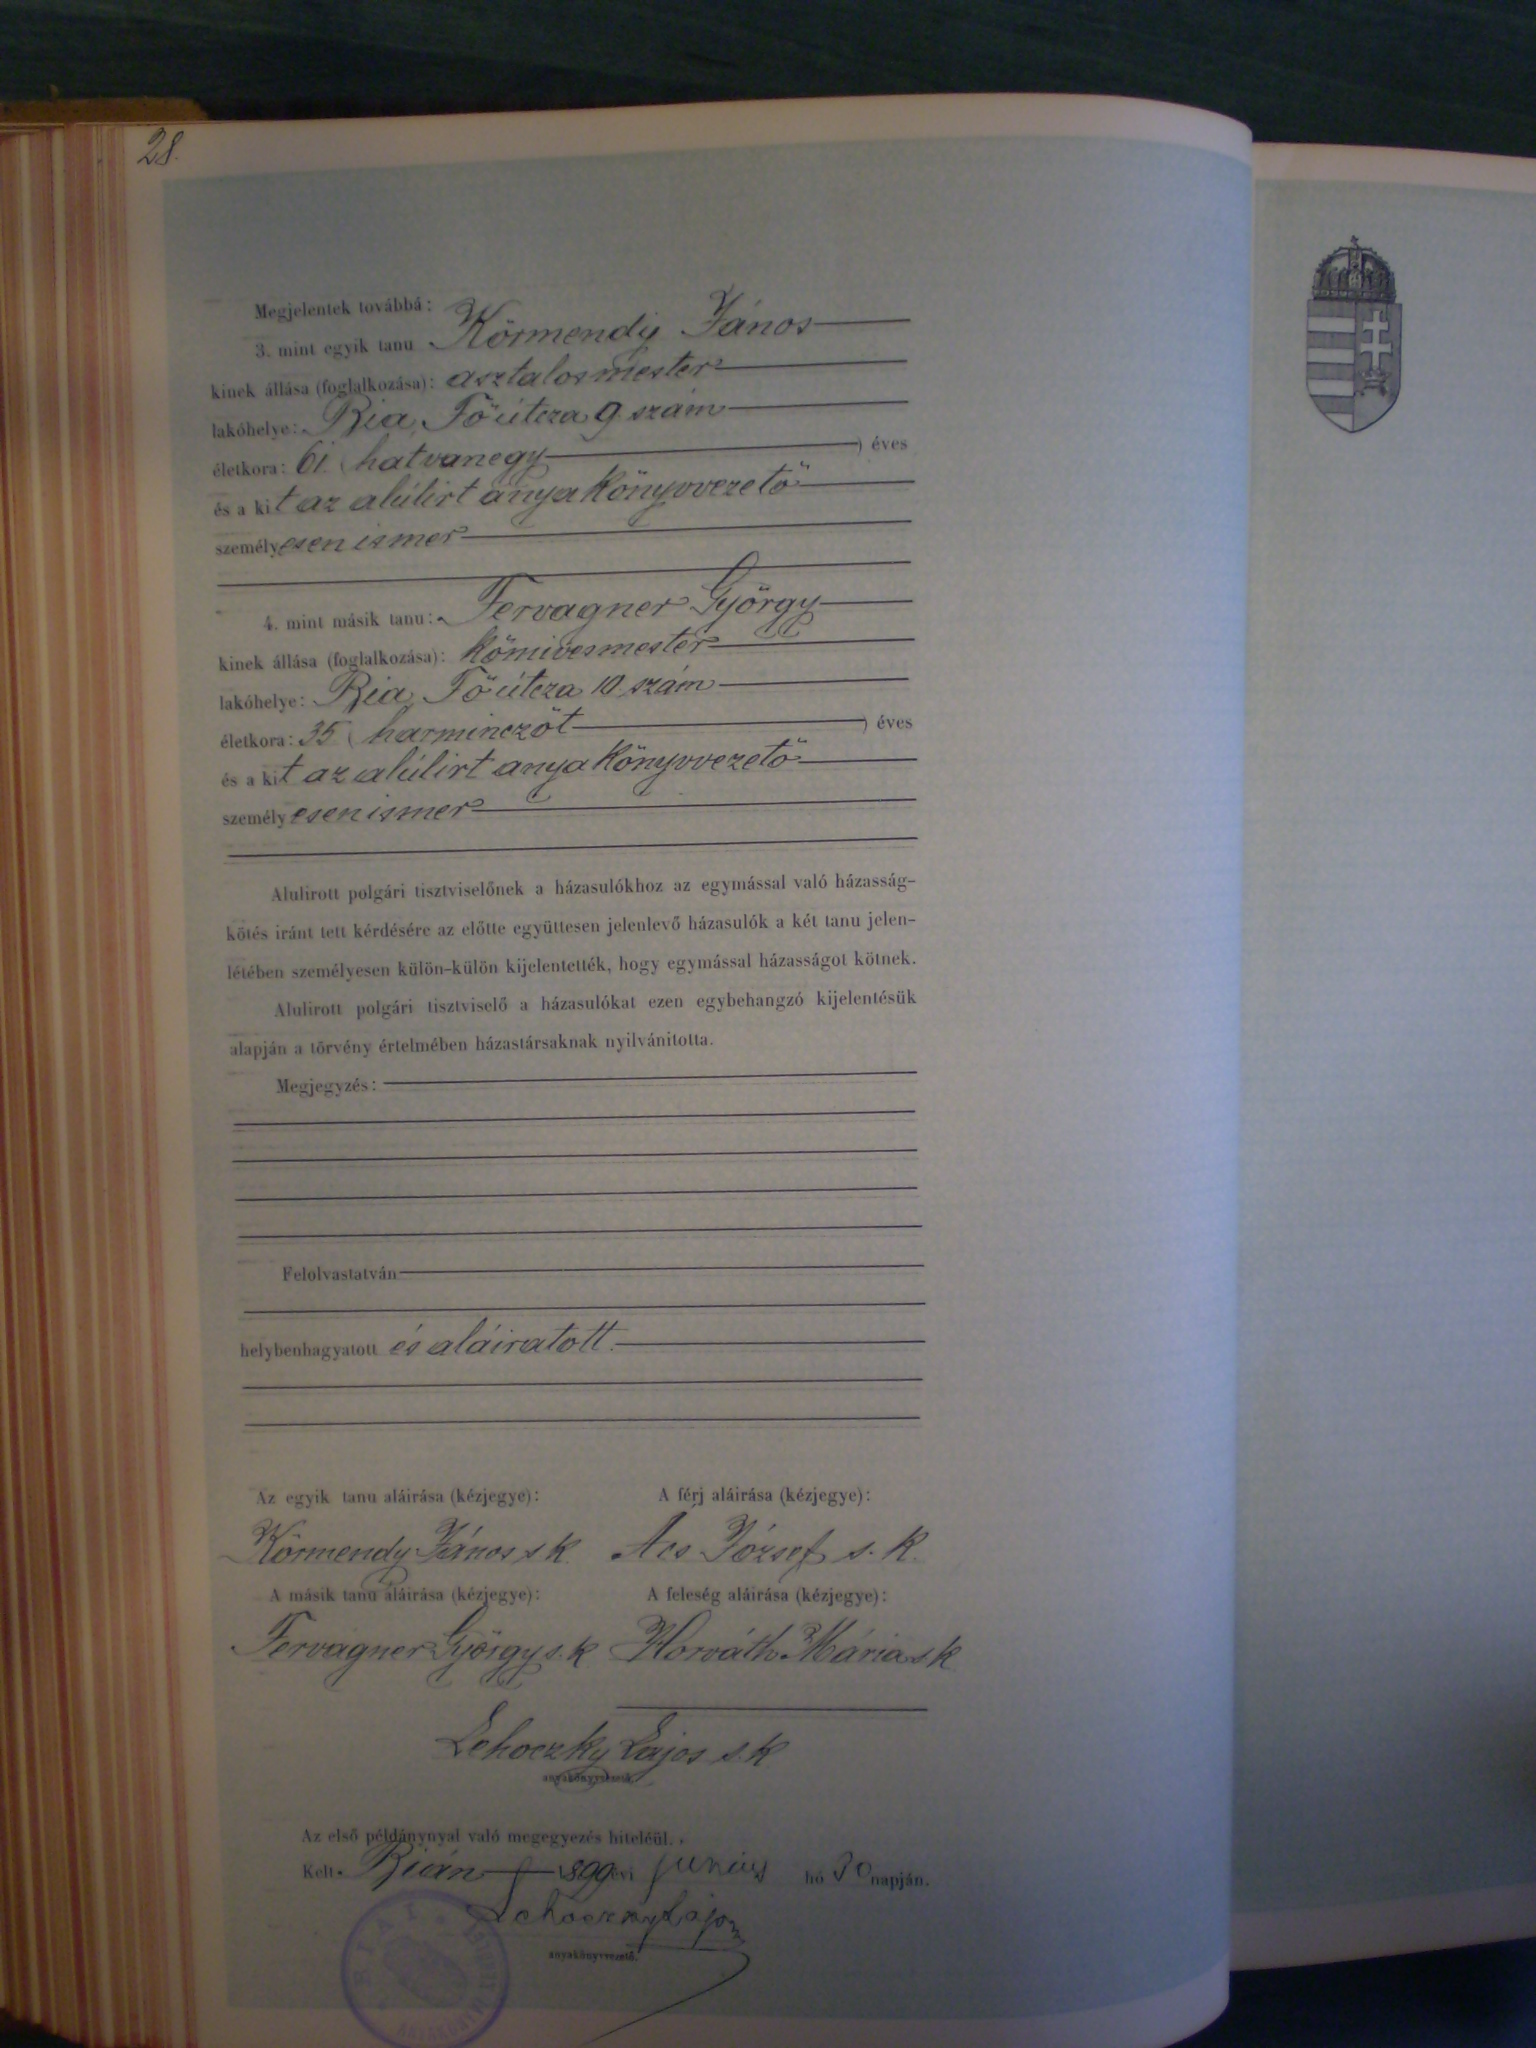 28.
Megjelentek továbbá:
3. mint egyik tanu Körmendy János
kinek állása (foglalkozása): asztalosmester
lakóhelye: Bia, Fő útcza 9 szám
életkora: 61. (hatvanegy) éves
és a kit az alúlirt anyakönyvvezető
személyesen ismer
4. mint másik tanu: Fervagner György
kinek állása (foglalkozása): kőmivesmester
lakóhelye: Bia, Fő útcza 10. szám
életkora: 35 (harminczöt) éves
és a kit az alúlirt anyakönyvvezető
személyesen ismer
Alulirott polgári tisztviselőnek a házasulókhoz az egymással való házasság-
kötés iránt tett kérdésére az előtte együttesen jelenlevő házasulók a két tanu jelen-
létében személyesen külön-külön kijelentették, hogy egymással házasságot kötnek.
Alulirott polgári tisztviselő a házasulókat ezen egybehangzó kijelentésük
alapján a törvény értelmében házastársaknak nyilvánitotta.
Megjegyzés:
Felolvastatván
helybenhagyatott és aláiratott.
Az egyik tanu aláirása (kézjegye): A férj aláirása (kézjegye):
Körmendy János s k. Ács József s. k.
A másik tanu aláirása (kézjegye): A feleség aláirása (kézjegye):
Fervagner György s. k Horváth Mária s. k
Lehoczky Lajos s. k
anyakönyvvezető.
Az első példánynyal való megegyezés hiteléül.
Kelt Bián 1899 évi junius hó 30 napján.
Lehoczky Lajos
anyakönyvvezető.
BIAI